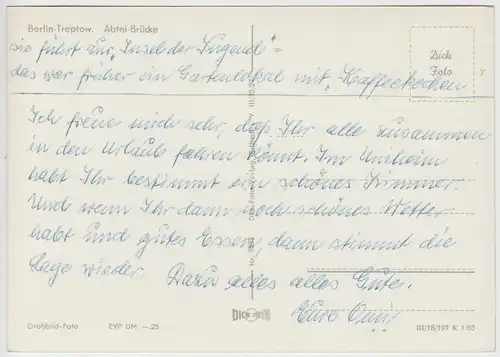 Berlin-Treptow. Abtei-Brücke
sie führt zur "Insel der Jugend" =
das war früher ein Gartenlokal mit "Kaffeekochen
Bick
Foto
Ich freue mich sehr, daß Ihr alle zusammen
in den Urlaub fahren könnt. Im Uniheim
habt Ihr bestimmt ein schönes Zimmer.
Und wenn Ihr dann noch schönes Wetter
habt und gutes Essen, dann stimmt die
Lage wieder. Dazu alles alles Gute.
Eure Omi!
Großbild-Foto EVP DM —.25
III/18/197 K 1/60